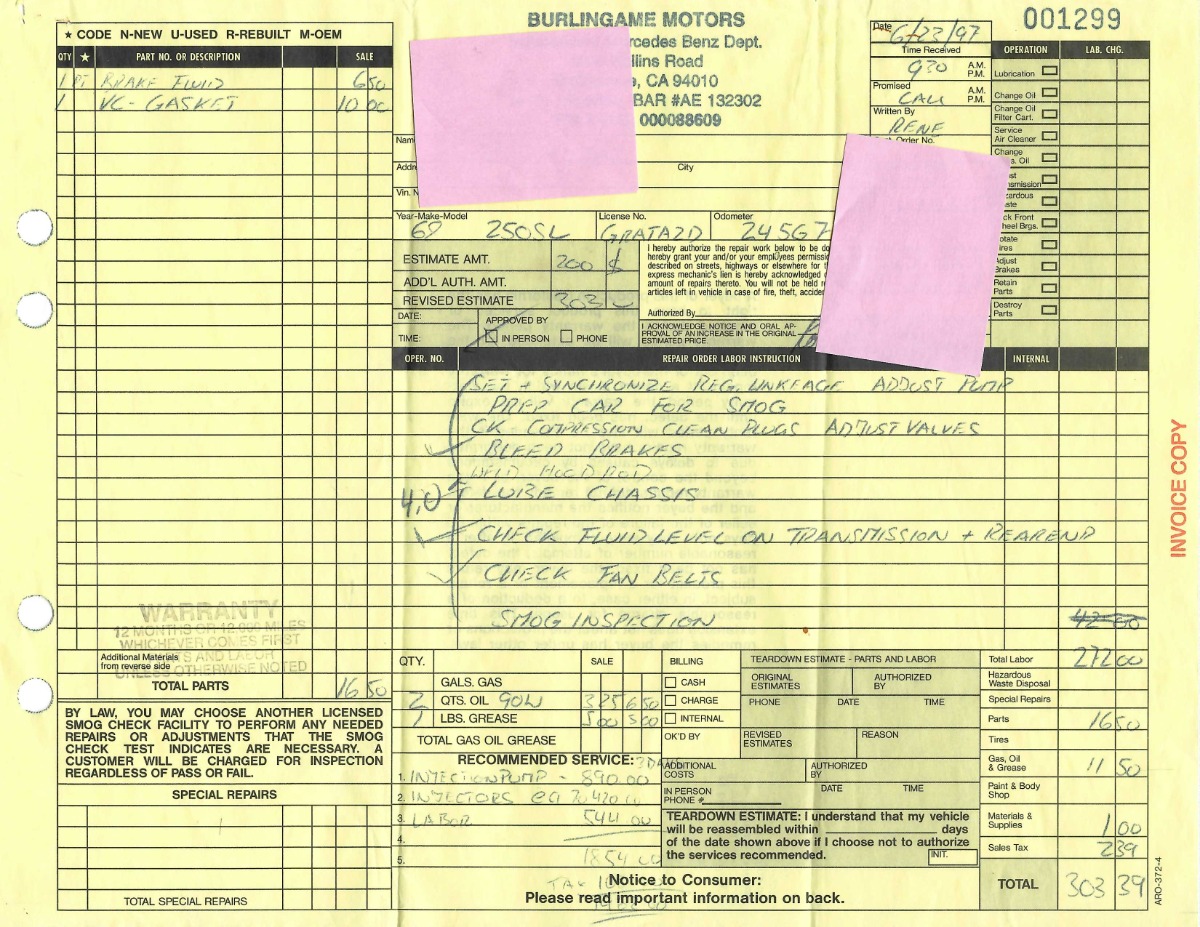 BURLINGAME MOTORS
rcedes Benz Dept.
llins Road
, CA 94010
BAR #AE 132302
000088609
001299
★ CODE N-NEW U-USED R-REBUILT M-OEM
QTY ★ PART NO. OR DESCRIPTION SALE
1 PT BRAKE FLUID 6 50
1 VC-GASKET 10 00
Date 6/23/97
Time Received
930 A.M. P.M.
Promised
CALL A.M. P.M.
Written By
RENE
Order No.
OPERATION LAB. CHG.
Lubrication
Change Oil
Change Oil Filter Cart.
Service Air Cleaner
Change
. Oil
Rotate
Adjust Brakes
Retain Parts
Destroy Parts
Nam
Addre
City
Vin. N
Year-Make-Model License No. Odometer
69 250SL GRATA2D 24567
ESTIMATE AMT. 200
ADD'L AUTH. AMT.
REVISED ESTIMATE 303
DATE: APPROVED BY
TIME: IN PERSON PHONE
I hereby authorize the repair work below to be do
hereby grant your and/or your employees permissio
described on streets, highways or elsewhere for t
express mechanic's lien is hereby acknowledged
amount of repairs thereto. You will not be held r
articles left in vehicle in case of fire, theft, accider
Authorized By
I ACKNOWLEDGE NOTICE AND ORAL AP-
PROVAL OF AN INCREASE IN THE ORIGINAL
ESTIMATED PRICE.
OPER. NO. REPAIR ORDER LABOR INSTRUCTION INTERNAL
SET + SYNCHRONIZE REG. LINKEAGE ADJUST PUMP
PREP CAR FOR SMOG
CK COMPRESSION CLEAN PLUGS ADJUST VALVES
BLEED BRAKES
WELD HOOD ROD
4.0 LUBE CHASSIS
CHECK FLUID LEVEL ON TRANSMISSION + REAREND
CHECK FAN BELTS
SMOG INSPECTION 42 00
INVOICE COPY
WARRANTY
12 MONTHS OR 12,000 MILES
WHICHEVER COMES FIRST
S AND LABOR
UNLESS OTHERWISE NOTED
Additional Materials
from reverse side
TOTAL PARTS 16 50
BY LAW, YOU MAY CHOOSE ANOTHER LICENSED
SMOG CHECK FACILITY TO PERFORM ANY NEEDED
REPAIRS OR ADJUSTMENTS THAT THE SMOG
CHECK TEST INDICATES ARE NECESSARY. A
CUSTOMER WILL BE CHARGED FOR INSPECTION
REGARDLESS OF PASS OR FAIL.
SPECIAL REPAIRS
TOTAL SPECIAL REPAIRS
QTY. SALE
GALS. GAS
2 QTS. OIL 90W 325 650
1 LBS. GREASE 500 500
TOTAL GAS OIL GREASE
RECOMMENDED SERVICE:
1. INJECTION PUMP - 890.00
2. INJECTORS EA 70 420
3. LABOR 544 00
4.
5. 1854 00
TAX
BILLING
CASH
CHARGE
INTERNAL
OK'D BY
TEARDOWN ESTIMATE - PARTS AND LABOR
ORIGINAL ESTIMATES AUTHORIZED BY
PHONE DATE TIME
REVISED ESTIMATES REASON
ADDITIONAL COSTS AUTHORIZED BY
IN PERSON DATE TIME
PHONE #
TEARDOWN ESTIMATE: I understand that my vehicle
will be reassembled within days
of the date shown above if I choose not to authorize
the services recommended. INIT.
Notice to Consumer:
Please read important information on back.
Total Labor 272 00
Hazardous Waste Disposal
Special Repairs
Parts 16 50
Tires
Gas, Oil & Grease 11 50
Paint & Body Shop
Materials & Supplies 1 00
Sales Tax 2 39
TOTAL 303 39
ARO-372-4